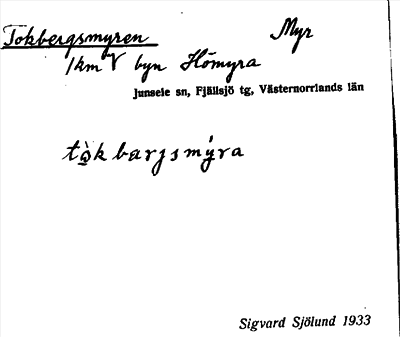 Tokbergsmyren Myr
1km V byn Hömyra
Junsele sn, Fjällsjö tg, Västernorrlands län
tò̱k barjsmýra
Sigvard Sjölund 1933